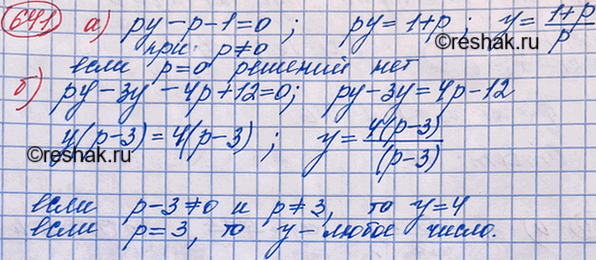 641 а) py - p - 1 = 0 ; py = 1 + p ; y = (1+p)/p
при p ≠ 0
если p = 0 решений нет
б) py - 3y - 4p + 12 = 0; py - 3y = 4p - 12
©reshak.ru
y(p-3) = 4(p-3) ; y = 4(p-3)/(p-3)
©reshak.ru
если p - 3 ≠ 0 и p ≠ 3, то y = 4
если p = 3, то y - любое число.